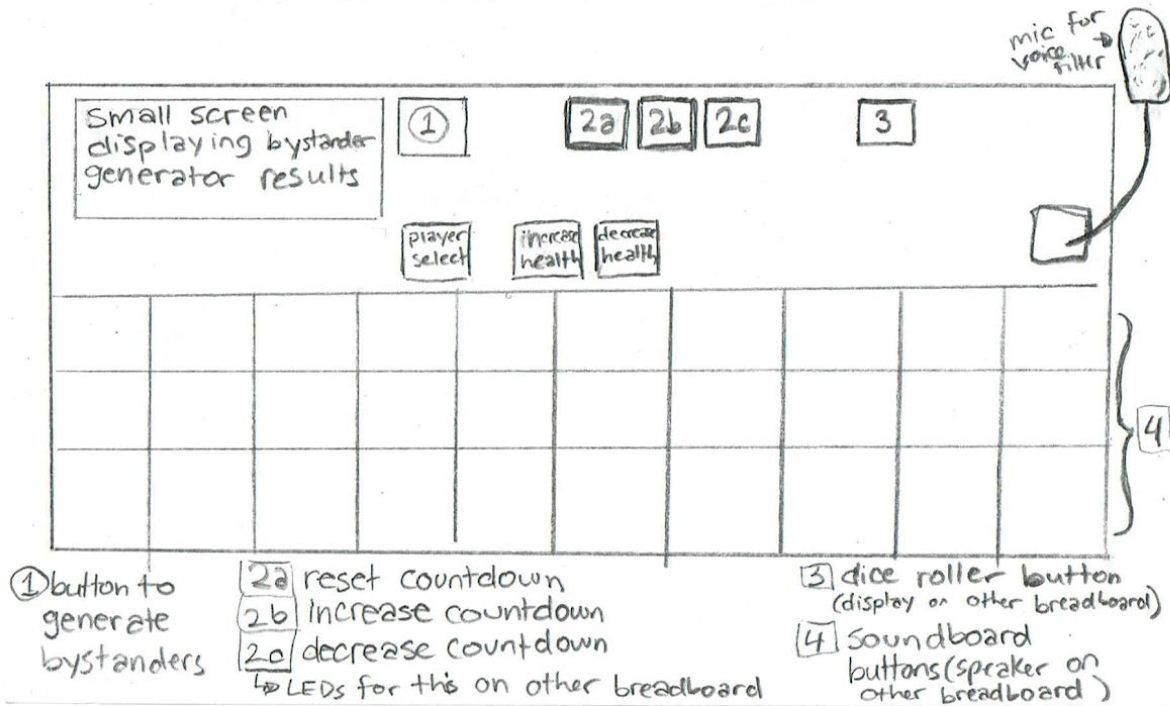 mic for
voice
filter
Small screen
displaying bystander
generator results
1
2a
2b
2c
3
player
select
increase
health
decrease
health
4
1 button to
generate
bystanders
2a reset countdown
2b increase countdown
2c decrease countdown
↳ LEDs for this on other breadboard
3 dice roller button
(display on other breadboard)
4 soundboard
buttons (spraker on
other breadboard)